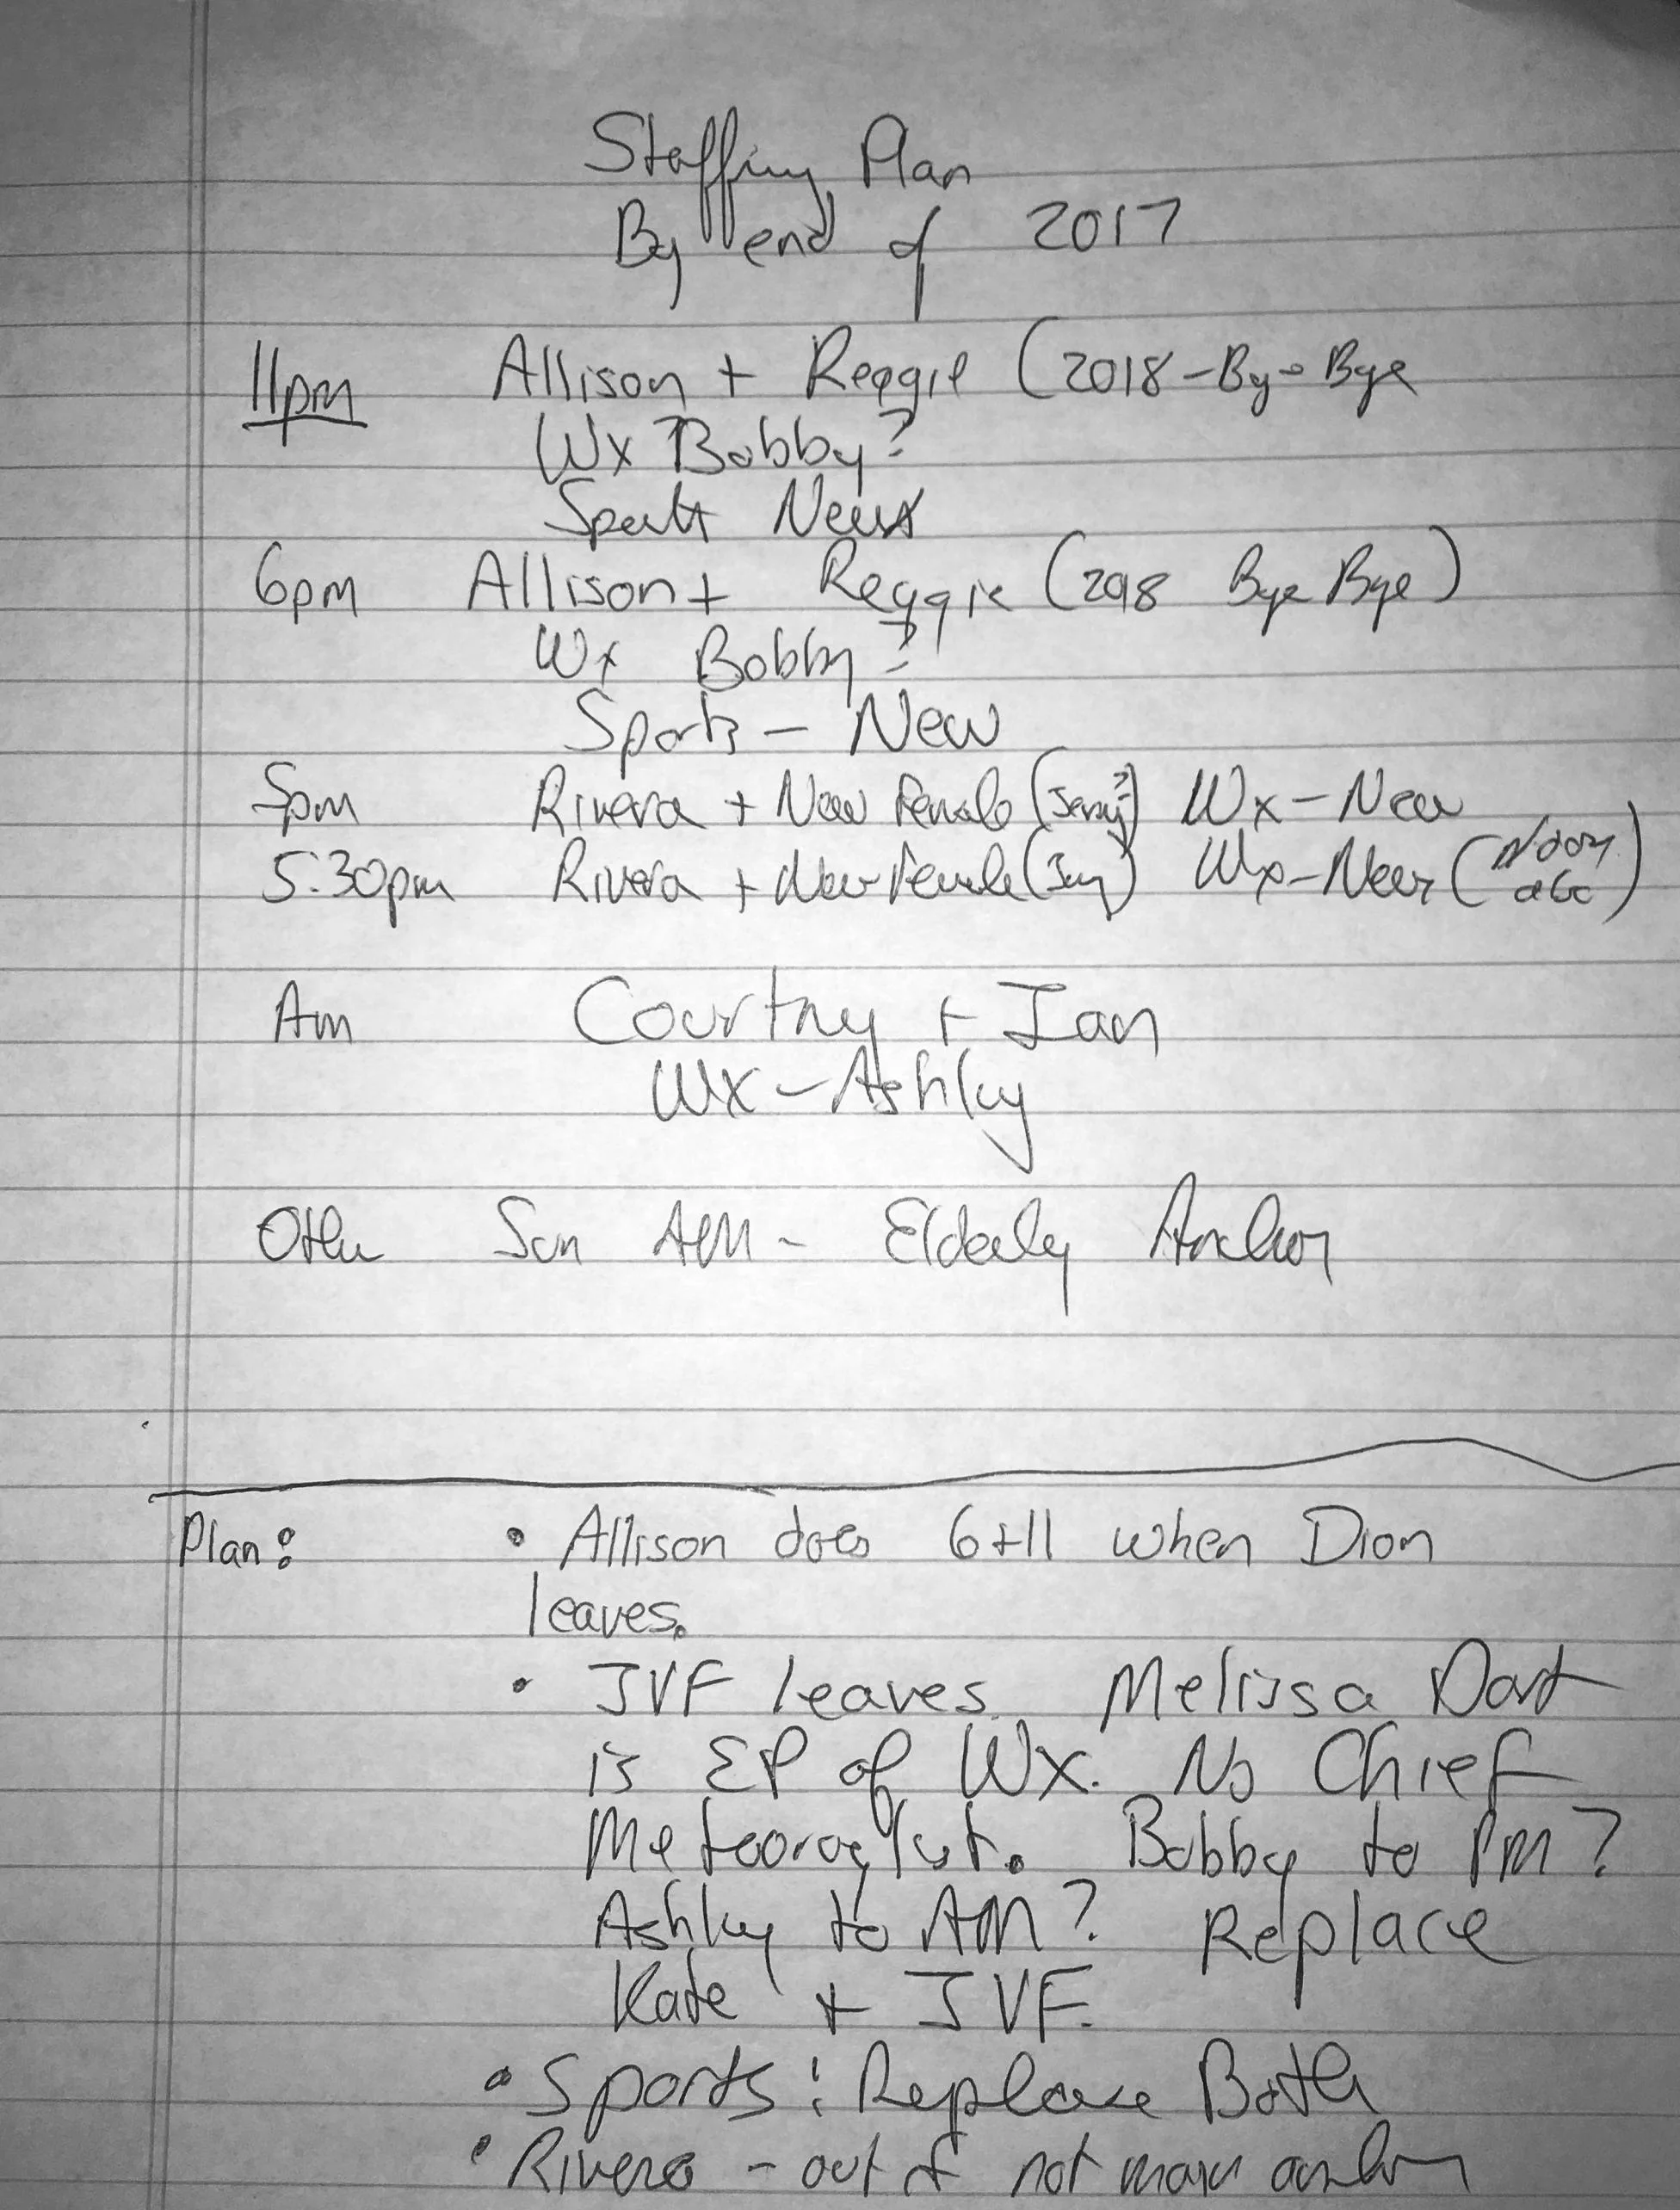 Staffing Plan
By end of 2017
11pm Allison + Reggie (2018 - By-Bye
Wx Bobby?
New
6pm Allison + Reggie (2018 Bye Bye)
Wx Bobby?
Sports - New
5pm Rivera + New Female (Jenny?) Wx - New
5:30pm Rivera + New Female Wx - New (Noon also)
Am Courtney + Ian
Wx - Ashley
Other Sun AM - Elderly Anchor
Plan: • Allison does 6+11 when Dion
leaves.
• JVF leaves. Melissa Dart
is EP of Wx. No Chief
Meteoroglist. Bobby to PM?
Ashley to AM? Replace
Kate + JVF.
• Sports: Replace Both
• Rivera - out of not main anchor